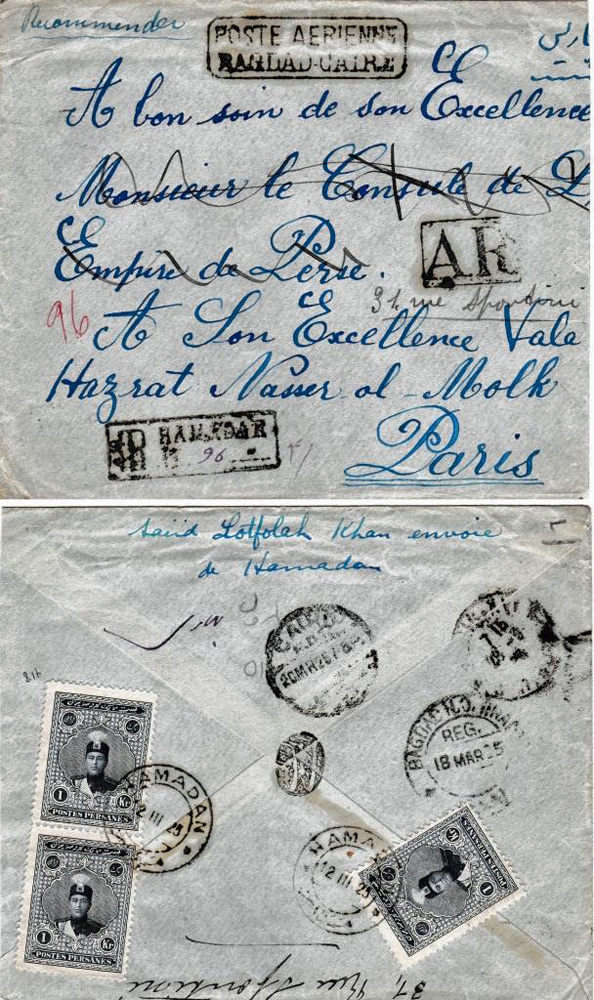 Recommender
POSTE AERIENNE
BAGDAD-CAIRE
A bon soin de son Excellence
Monsieur le Consule de
Empire de Perse.
AR
31 rue Spontini
96
A Son Excellence Vala
Hazrat Nasser ol-Molk
R HAMADAN
96
Paris
Saiid Lotfolah Khan envoie
de Hamadan
CAIRO
20 MR 25
BAGDAD
REG.
18 MAR 25
216
1 Kr
POSTES PERSANES
HAMADAN
12 III 25
1 Kr
POSTES PERSANES
HAMADAN
12 III 25
1 Kr
POSTES PERSANES
31, Rue Spontini